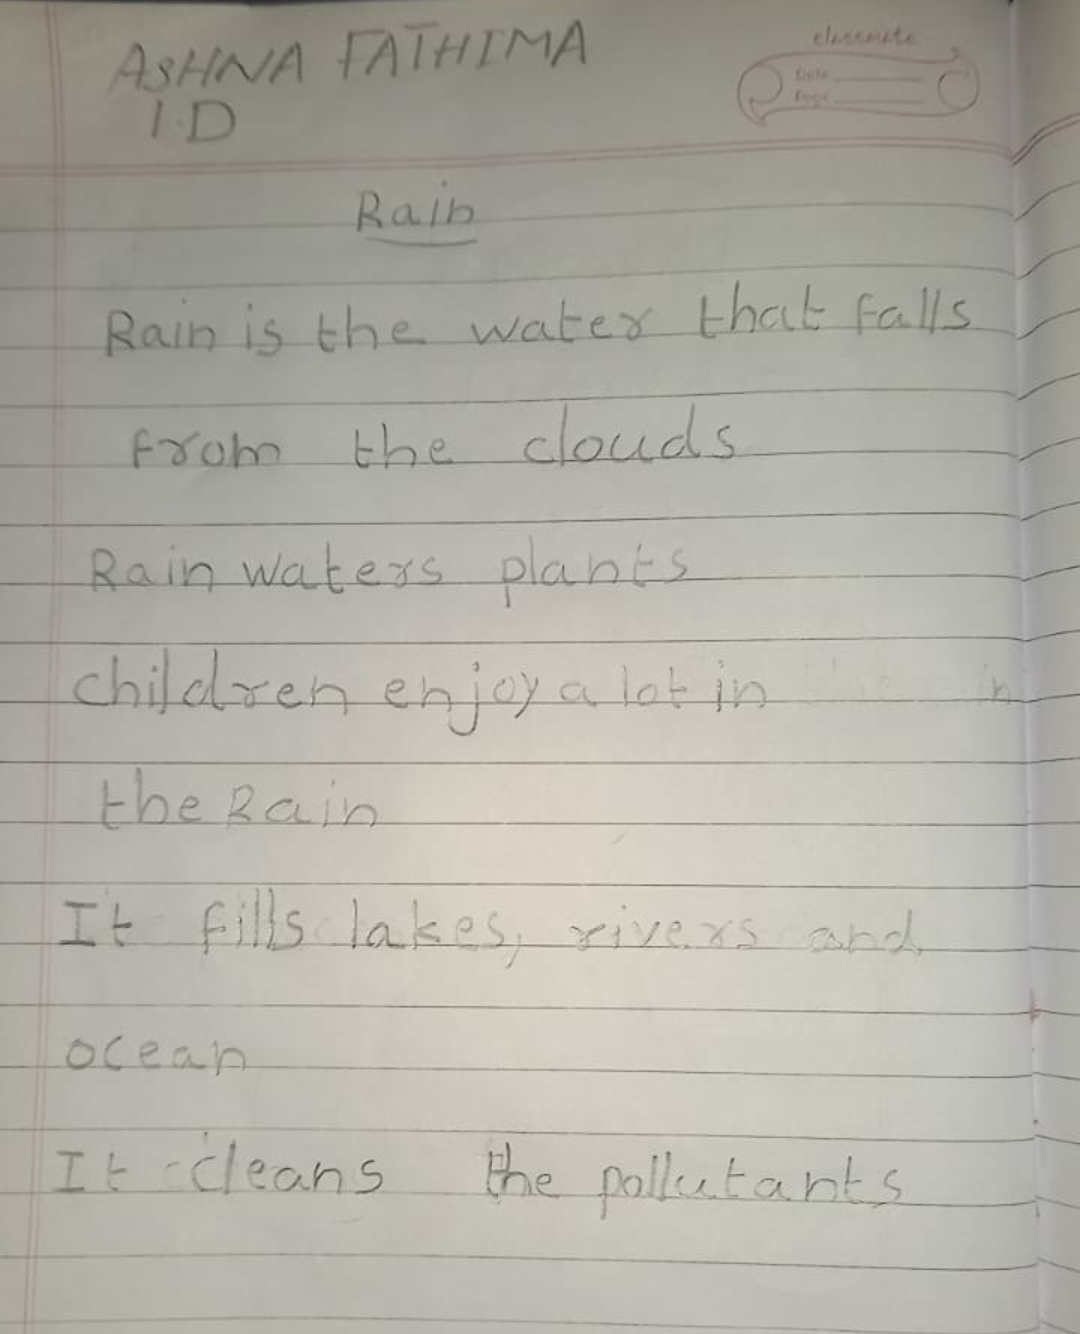 ASHNA FATHIMA
classmate
1.D
Date
Page
Rain
Rain is the water that falls
from the clouds
Rain waters plants
children enjoy a lot in
the Rain
It fills lakes, rivers and
ocean
It cleans the pollutants